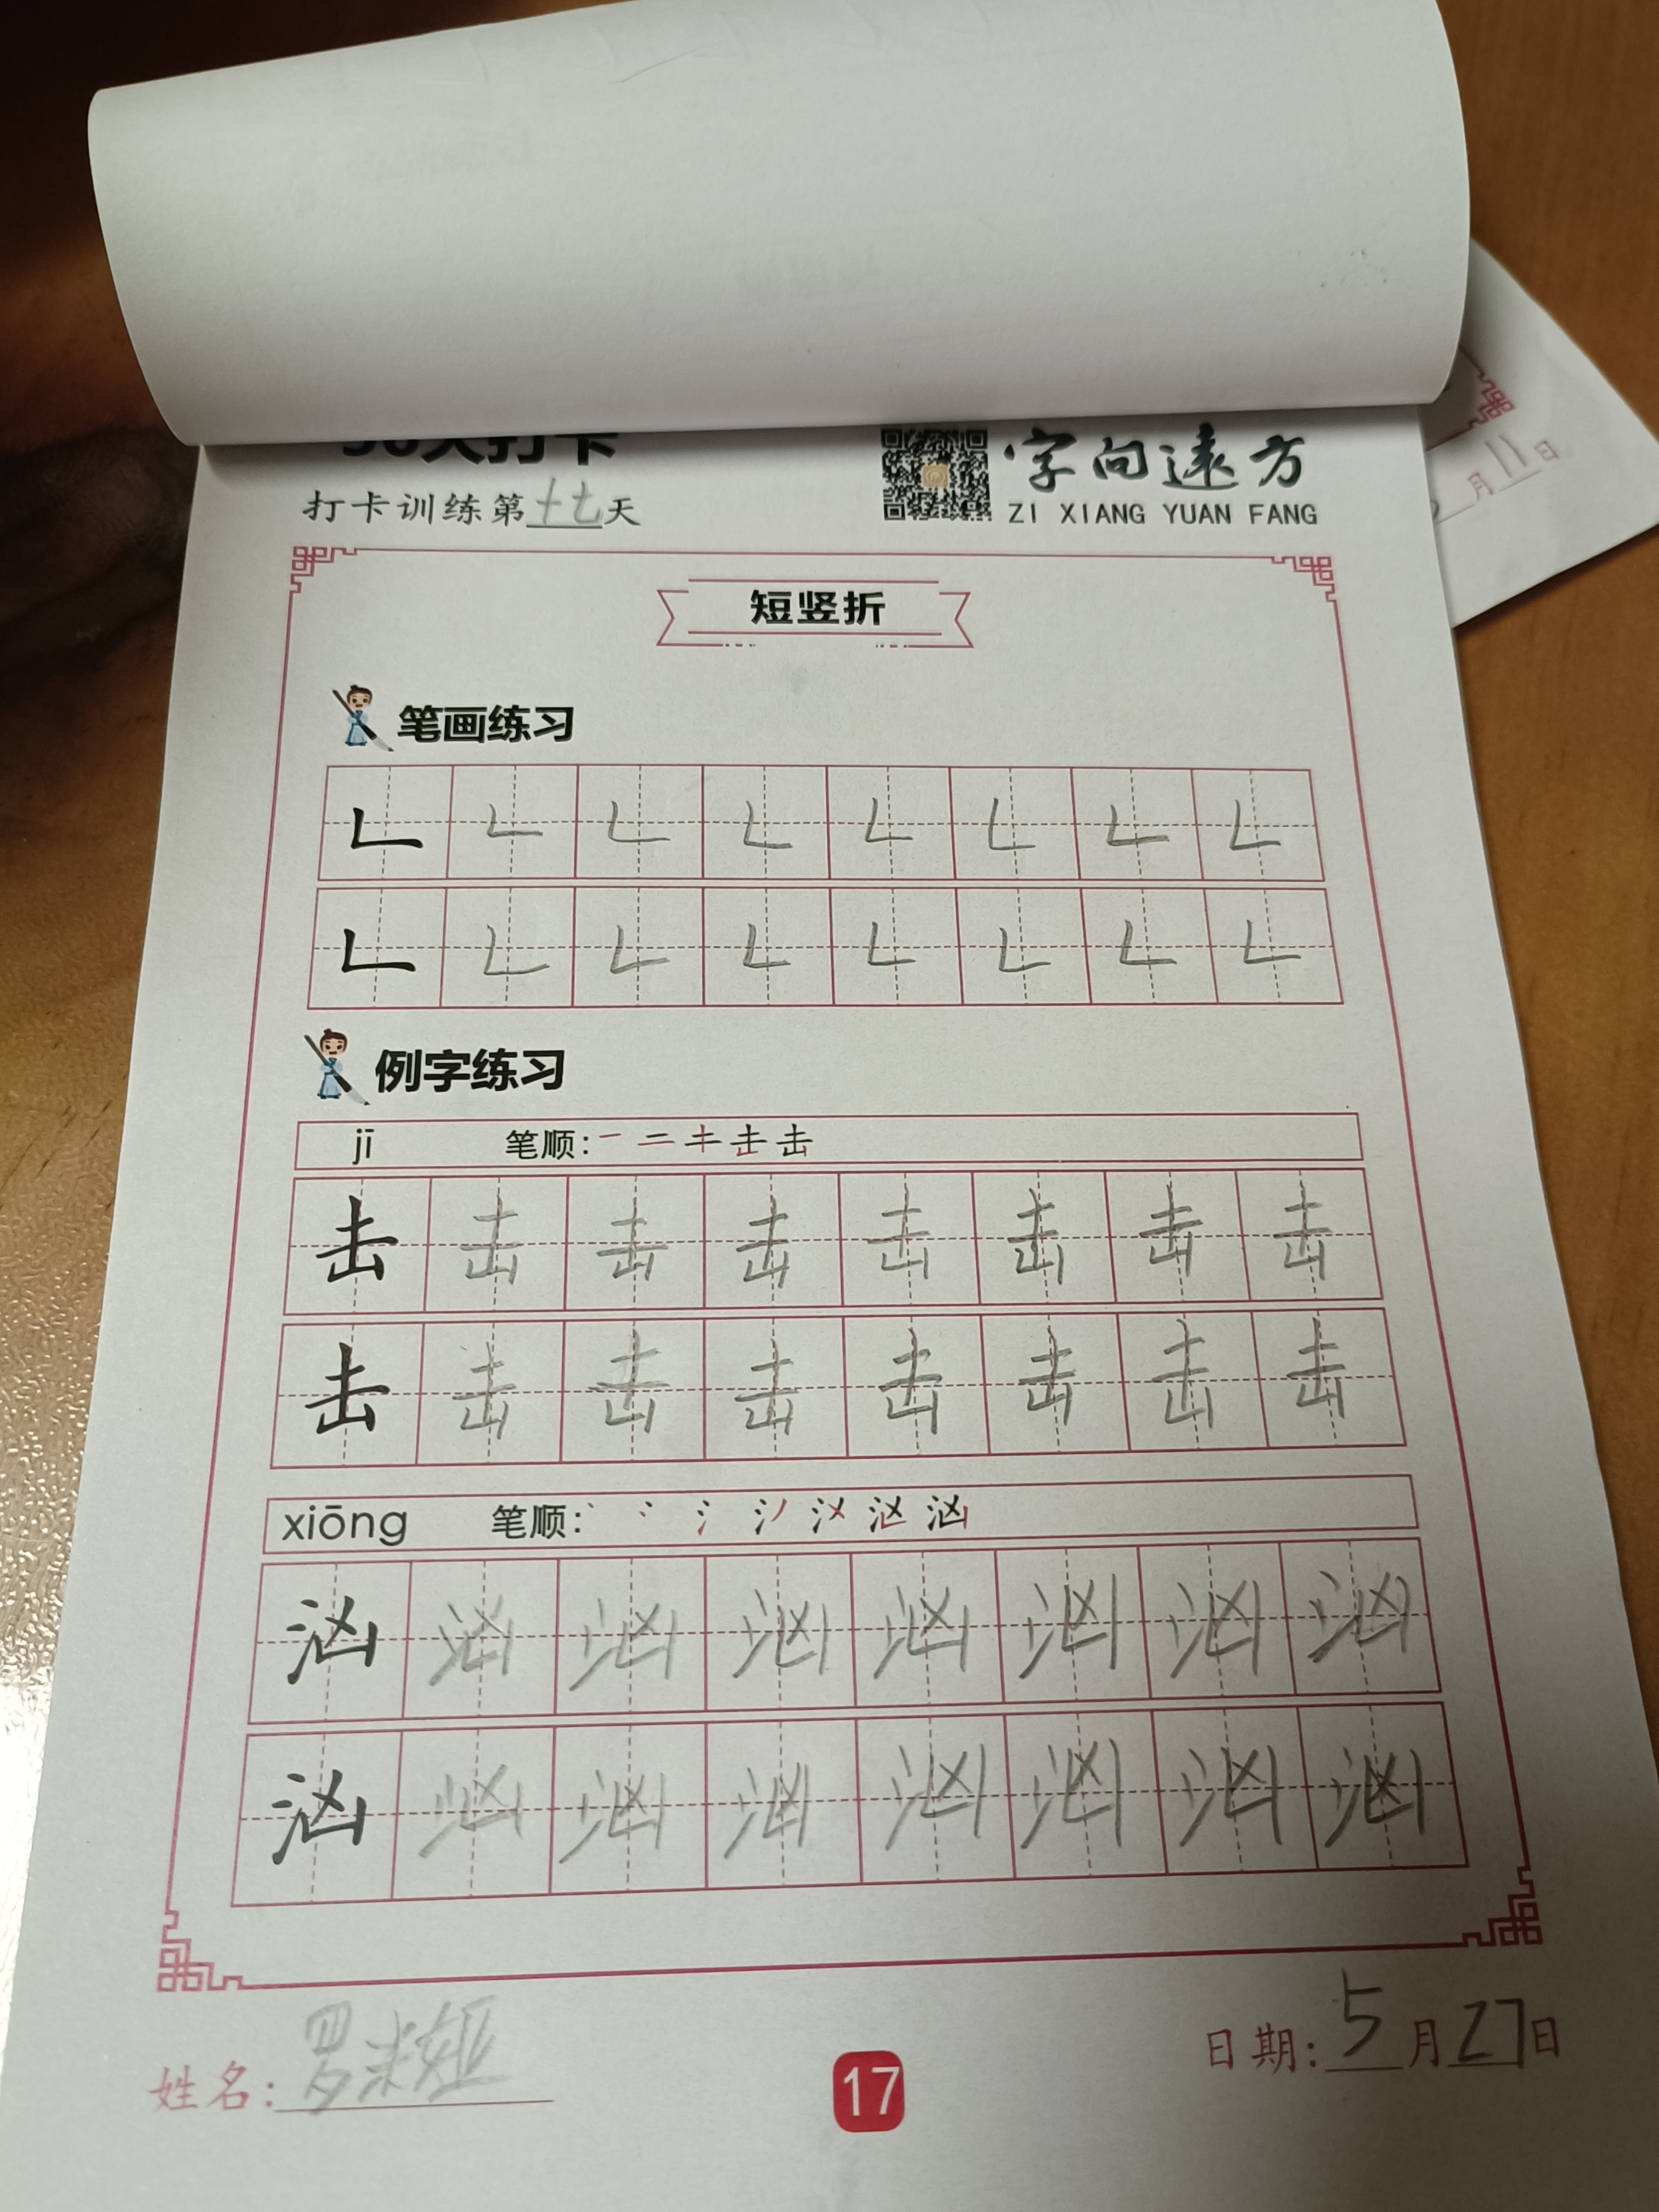 打卡训练第十七天
字向遠方
ZI XIANG YUAN FANG
短竖折
笔画练习
例字练习
jī 笔顺:
击 击 击 击 击 击 击 击
击 击 击 击 击 击 击 击
xiōng 笔顺:
汹 汹 汹 汹 汹 汹 汹 汹
汹 汹 汹 汹 汹 汹 汹 汹
姓名:罗
17
日期:5月27日
月11日